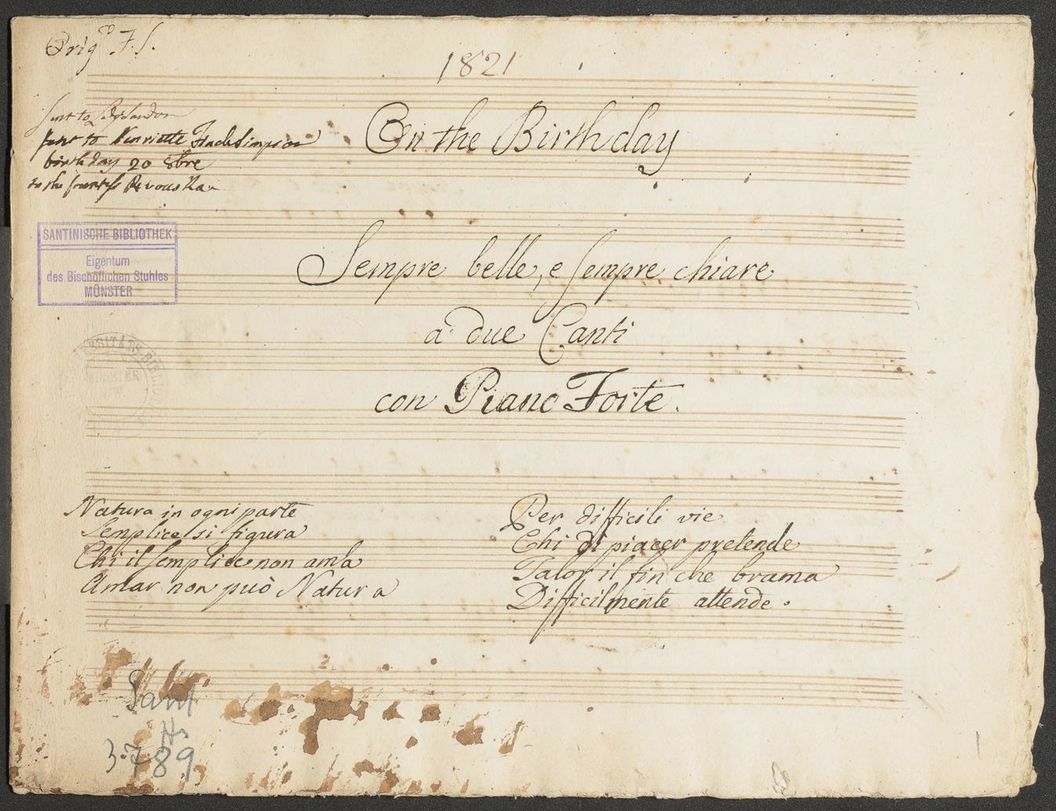 Orig.º F. S.
1821
On the Birthday
Sent to
Sent to Henriette
birth day 20 8bre
to the
SANTINISCHE BIBLIOTHEK
Eigentum
des Bischöflichen Stuhles
MÜNSTER
Sempre belle, e sempre chiare
a due Canti
con Piano Forte.
MÜNSTER
Natura in ogni parte
Semplice si figura
Chi il semplice non ama
Amar non può Natura
Per difficili vie
Chi di piacer pretende
Talor il fin che brama
Difficilmente attende.
Sant
Hs
3789
1